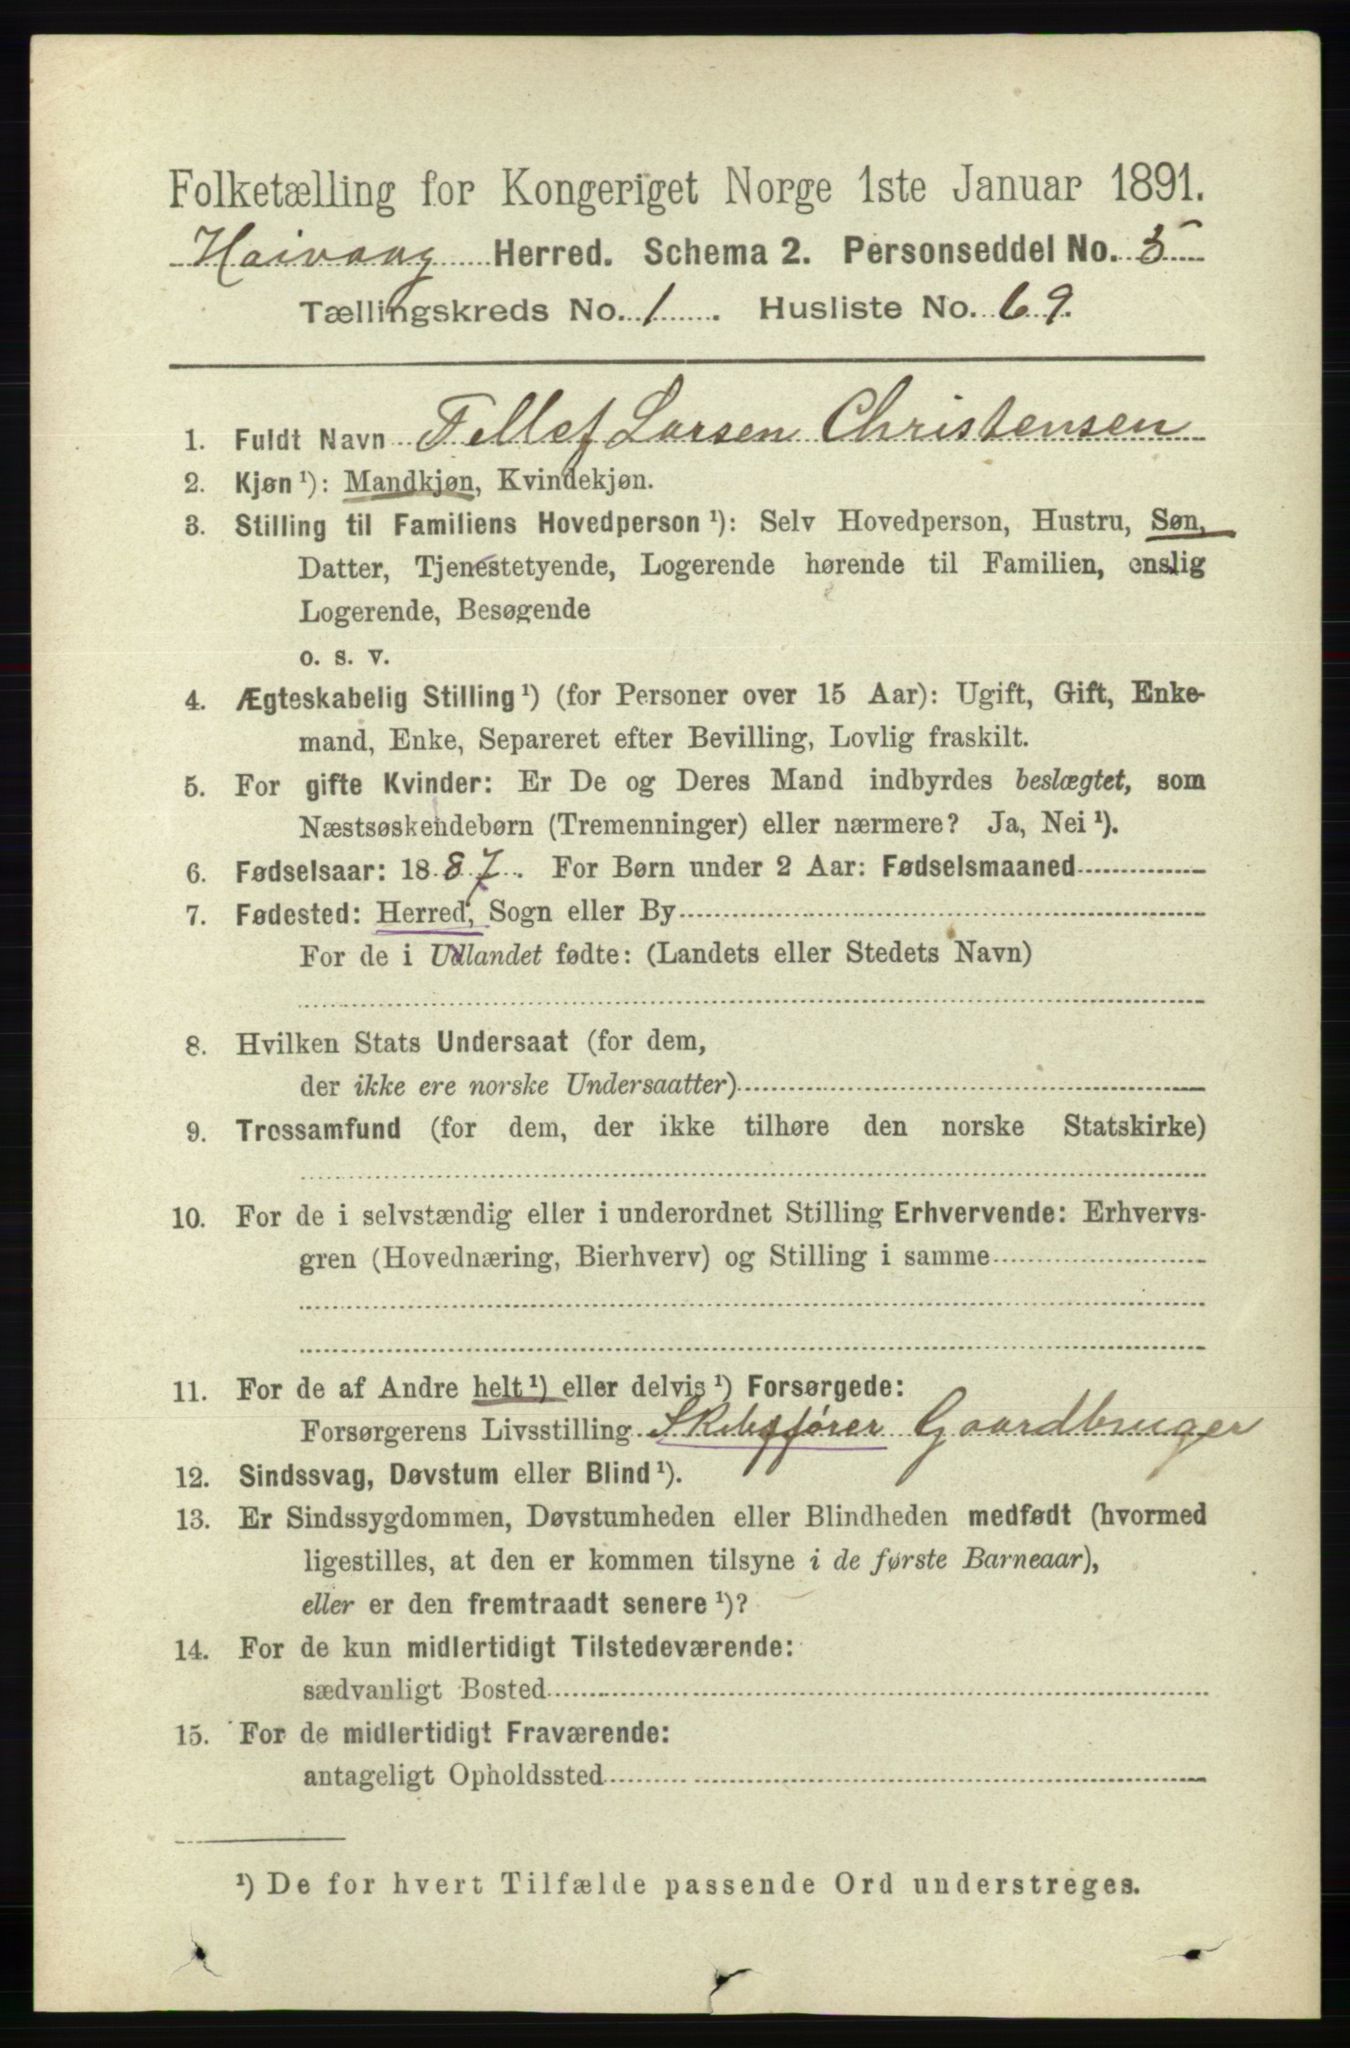 Folketælling for Kongeriget Norge 1ste Januar 1891.
Høivaag Herred. Schema 2. Personseddel No. 5
Tællingskreds No. 1. Husliste No. 69.
1. Fuldt Navn Tellef Larsen Christensen
2. Kjøn ¹): Mandkjøn, Kvindekjøn.
3. Stilling til Familiens Hovedperson ¹): Selv Hovedperson, Hustru, Søn,
Datter, Tjenestetyende, Logerende hørende til Familien, enslig
Logerende, Besøgende
o. s. v.
4. Ægteskabelig Stilling ¹) (for Personer over 15 Aar): Ugift, Gift, Enke-
mand, Enke, Separeret efter Bevilling, Lovlig fraskilt.
5. For gifte Kvinder: Er De og Deres Mand indbyrdes beslægtet, som
Næstsøskendebørn (Tremenninger) eller nærmere? Ja, Nei ¹).
6. Fødselsaar: 1887. For Børn under 2 Aar: Fødselsmaaned
7. Fødested: Herred, Sogn eller By
For de i Udlandet fødte: (Landets eller Stedets Navn)
8. Hvilken Stats Undersaat (for dem,
der ikke ere norske Undersaatter)
9. Trossamfund (for dem, der ikke tilhøre den norske Statskirke)
10. For de i selvstændig eller i underordnet Stilling Erhvervende: Erhvervs-
gren (Hovednæring, Bierhverv) og Stilling i samme
11. For de af Andre helt ¹) eller delvis ¹) Forsørgede:
Forsørgerens Livsstilling Skibsfører Gaardbruger
12. Sindssvag, Døvstum eller Blind ¹).
13. Er Sindssygdommen, Døvstumheden eller Blindheden medfødt (hvormed
ligestilles, at den er kommen tilsyne i de første Barneaar),
eller er den fremtraadt senere ¹)?
14. For de kun midlertidigt Tilstedeværende:
sædvanligt Bosted
15. For de midlertidigt Fraværende:
antageligt Opholdssted
¹) De for hvert Tilfælde passende Ord understreges.